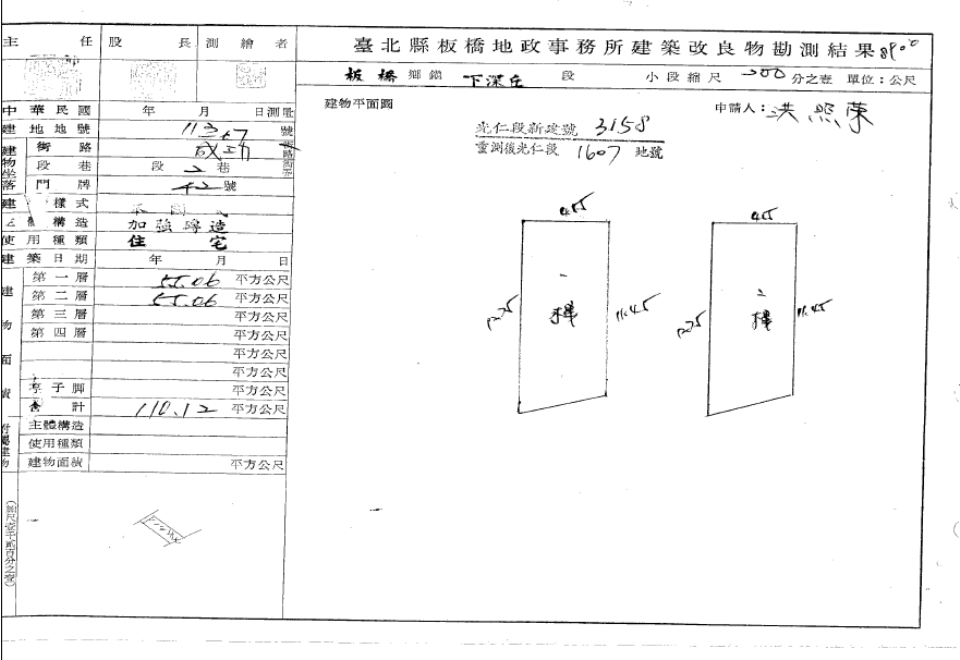 臺北縣板橋地政事務所建築改良物勘測結果
板橋 鄉鎮 段 小段縮尺 200 分之壹 單位：公尺
主任 股長 測繪者
建物平面圖
申請人：洪熙荣
光仁段新建號 3158
重測後光仁段 1607 地號
中華民國 年 月 日測量
建地地號 號
建物坐落 街路 成功
段巷 段 2 巷
門牌 42 號
樣式
構造 加強磚造
使用種類 住宅
建築日期 年 月 日
建物面積
第一層 55.06 平方公尺
第二層 55.06 平方公尺
第三層 平方公尺
第四層 平方公尺
平方公尺
平方公尺
亭子腳 平方公尺
合計 110.12 平方公尺
附屬建物
主體構造
使用種類
建物面積 平方公尺
4.5
一樓
12.75
11.45
4.5
二樓
12.75
11.45